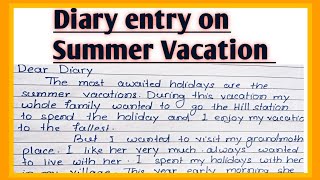 Diary entry on
Summer Vacation
Dear Diary
The most awaited holidays are the
summer vacations. During this vacation my
whole family wanted to go the Hill station
to spend the holiday and I enjoy my vacatio
to the fullest.
But I wanted to visit my grandmoth
place. I like her very much always wanted
to live with her. I spent my holidays with her
in my village. This year early morning she